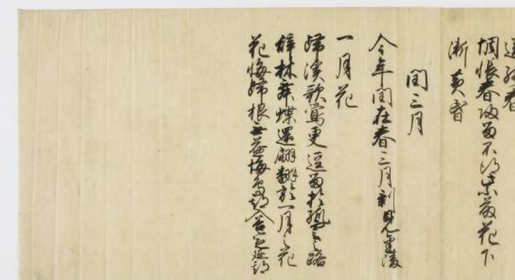 惆悵春歸留不得紫藤花下
漸黄昏
閏三月
今年閏在春三月剰見金陵
一月花
帰渓歌鶯更逗留於孤雲之路
辞林舞蝶還翩翻於一月之花
花悔帰根無益悔鳥期入谷定延期